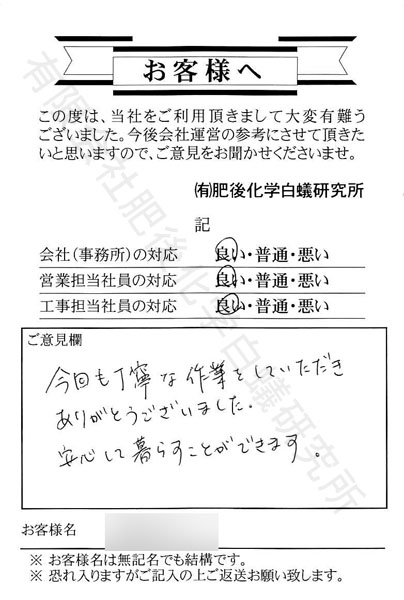 お客様へ
この度は、当社をご利用頂きまして大変有難う
ございました。今後会社運営の参考にさせて頂きた
いと思いますので、ご意見をお聞かせくださいませ。
㈲肥後化学白蟻研究所
記
会社(事務所)の対応 良い・普通・悪い
営業担当社員の対応 良い・普通・悪い
工事担当社員の対応 良い・普通・悪い
ご意見欄
今回も丁寧な作業をしていただき
ありがとうございました.
安心して暮らすことができます。
お客様名
※ お客様名は無記名でも結構です。
※ 恐れ入りますがご記入の上ご返送お願い致します。
有限会社肥後化学白蟻研究所